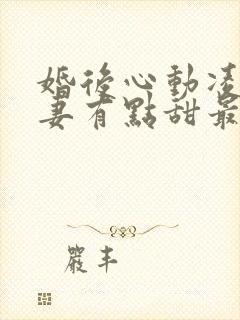 婚後心動凌
妻有點甜最
嚴丰